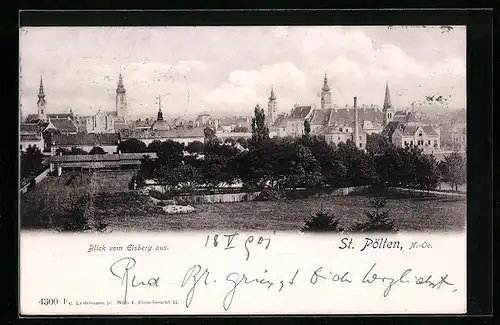 18 V 901
Blick vom Eisberg aus.
St. Pölten, N.-Oe.
Rud. Br. grüsst Dich herzlichst
4300 Wien I. Fleischmarkt